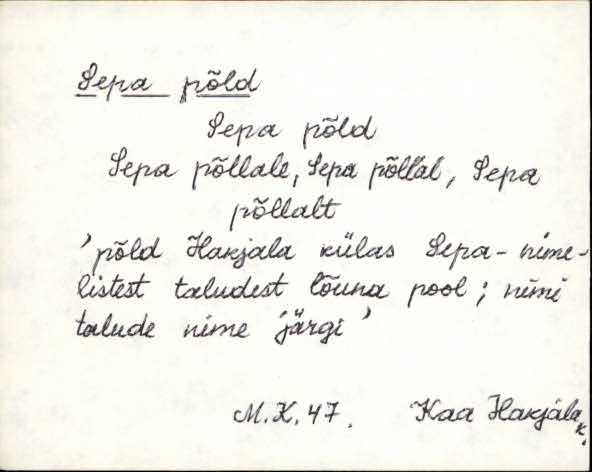 Sepa põld
Sepa põld
Sepa põllale, Sepa põllal, Sepa
põllalt
'põld Hakjala külas Sepa-nime-
listest taludest lõuna pool; nimi
talude nime järgi'
M.K. 47. Kaa Hakjala k.